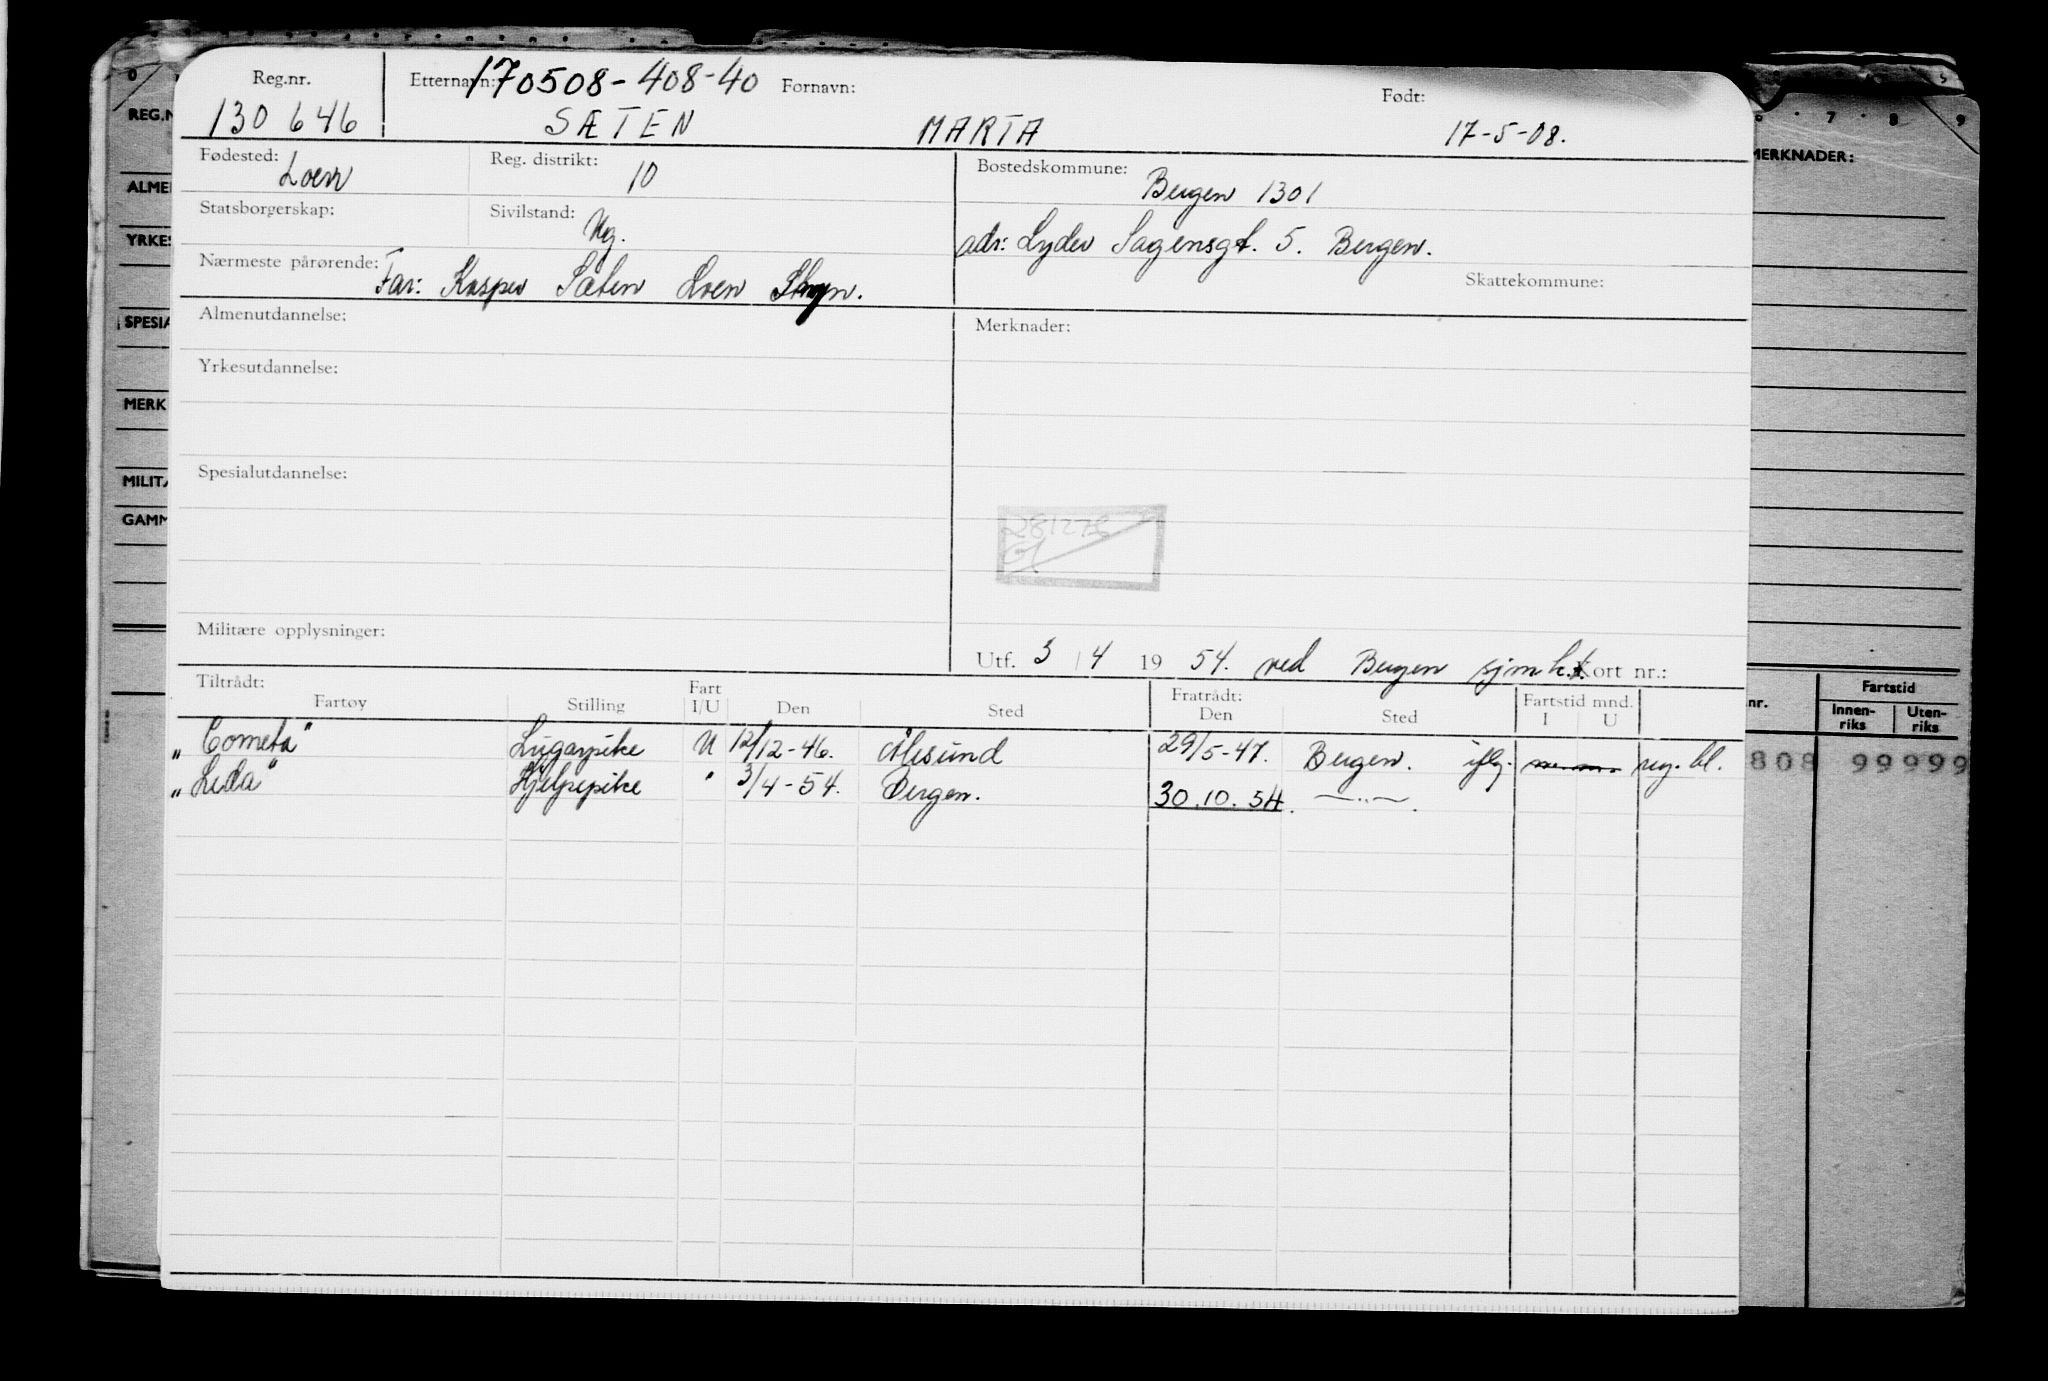 Reg.nr. Etternavn: 170508-408-40 Fornavn: Født:
130 646 SÆTEN MARTA 17-5-08.
Fødested: Loen Reg. distrikt: 10 Bostedskommune: Bergen 1301
Statsborgerskap: Sivilstand: Ug. adr: Lyder Sagensgt. 5. Bergen.
Nærmeste pårørende: Far: Kasper Sæten Loen Stryn. Skattekommune:
Almenutdannelse: Merknader:
Yrkesutdannelse:
Spesialutdannelse:
281278
Militære opplysninger:
Utf. 3 / 4 19 54. ved Bergen sjm.k. Kort nr.:
Tiltrådt: Fratrådt:
Fartøy Stilling Fart I/U Den Sted Den Sted Fartstid mnd. I U
"Cometa" Lugarpike U 12/12-46. Ålesund 29/5-47. Bergen. iflg. reg. bl.
"Leda" Hjelpepike " 3/4-54. Bergen. 30.10.54. —"—.
REG.N
ALME
YRKES
SPESIA
MERK
MILITÆ
GAMM
7 8 9
MERKNADER:
nr. Fartstid
Innen-riks Uten-riks
808 99999